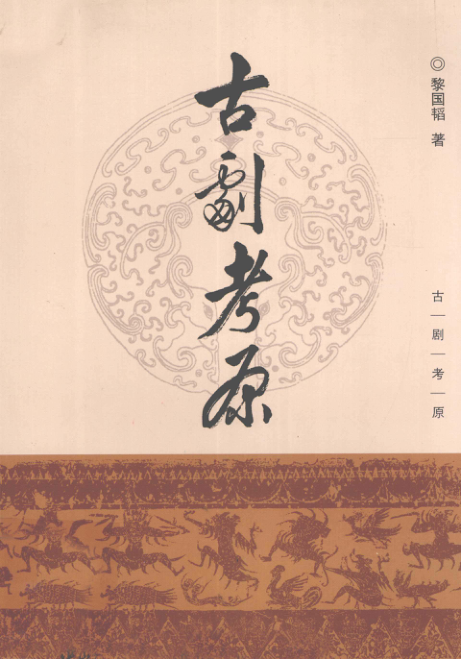 古劇考原
◎黎国韬 著
古|剧|考|原